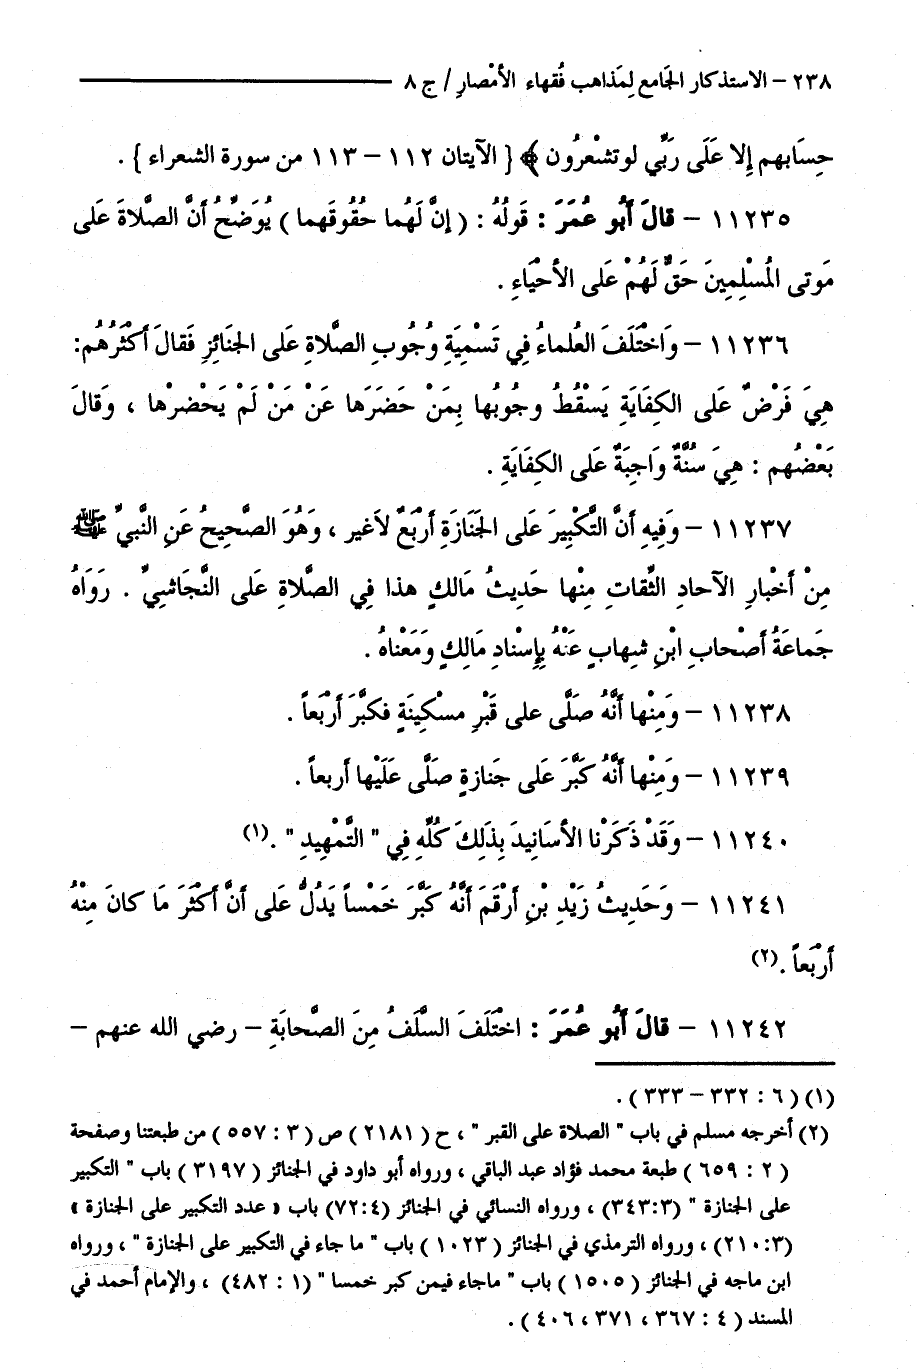 ٢٣٨ – الاستذكار الجَامع لِمَذاهب فُقهاء الأمْصارِ / ج ٨
حِسَابهم إِلا عَلَى رَبِّي لوتشْعرُون ﴾ [ الآيتان ١١٢ – ١١٣ من سورة الشعراء ] .
١١٢٣٥ – قالَ أَبُو عُمَرَ : قَولُهُ : ( إنَّ لَهُما حُقُوقَهما ) يُوَضِّحُ أَنَّ الصَّلاةَ عَلى
مَوتى المُسْلِمِينَ حَقٌّ لَهُمْ عَلى الأحْيَاءِ .
١١٢٣٦ – وَاخْتَلَفَ العُلماءُ فِي تَسْمِيَةِ وجُوبِ الصَّلاةِ عَلى الجنَائِزِ فَقالَ أكْثَرُهُم:
هِيَ فَرْضٌ عَلى الكِفَايَةِ يَسْقُطُ وجُوبُها بِمَنْ حَضَرَها عَنْ مَنْ لَمْ يَحْضرْها ، وَقالَ
بَعْضُهم : هِيَ سُنَّةٌ وَاجِبَةٌ عَلى الكِفَايَةِ .
١١٢٣٧ – وَفِيهِ أَنَّ التَّكْبِيرَ عَلى الجَنَازَةِ أَرْبَعٌ لاَغير ، وَهُوَ الصَّحِيحُ عَنِ النَّبيِّ ﷺ
مِنْ أَخْبارِ الآحادِ الثِّقاتِ مِنْها حَدِيثُ مَالكٍ هذا فِي الصَّلاةِ عَلى النَّجَاشيِّ . رَوَاهُ
جَماعَةُ أَصْحابِ ابْنِ شهابٍ عَنْهُ بِإِسْنادِ مَالِكٍ وَمَعْناهُ .
١١٢٣٨ – وَمِنْها أَنَّهُ صَلَّى على قَبْرِ مسْكِينَةٍ فكبَّرَ أَرْبَعاً .
١١٢٣٩ – وَمِنْها أَنَّهُ كَبَّرَ عَلى جَنازةٍ صَلَّى عَلَيْها أَربعاً .
١١٢٤٠ – وَقَدْ ذَكَرْنا الأسَانِيدَ بِذَلِكَ كُلِّهِ فِي " التَّمْهِيدِ " .(١)
١١٢٤١ – وَحَدِيثُ زَيْدِ بْنِ أَرْقَمَ أَنَّهُ كَبَّرَ خَمْساً يَدُلُّ عَلى أَنَّ أَكْثَرَ مَا كانَ مِنْهُ
أَرْبَعاً .(٢)
١١٢٤٢ – قالَ أَبُو عُمَرَ : اخْتَلَفَ السَّلَفُ مِنَ الصَّحابَةِ – رضي الله عنهم –
(١) ( ٦ : ٣٣٢ – ٣٣٣ ) .
(٢) أخرجه مسلم في باب " الصلاة على القبر " ، ح ( ٢١٨١ ) ص ( ٣ : ٥٥٧ ) من طبعتنا وصفحة
( ٢ : ٦٥٩ ) طبعة محمد فؤاد عبد الباقي ، ورواه أبو داود في الجنائز ( ٣١٩٧ ) باب " التكبير
على الجنازة " (٣:٣٤٣) ، ورواه النسائي في الجنائز (٧٢:٤) باب « عدد التكبير على الجنازة »
(٣:٢١٠) ، ورواه الترمذي في الجنائز ( ١٠٢٣ ) باب " ما جاء في التكبير على الجنازة " ، ورواه
ابن ماجه في الجنائز ( ١٥٠٥ ) باب " ماجاء فيمن كبر خمسا " (١ : ٤٨٢) ، والإمام أحمد في
المسند ( ٤ : ٣٦٧ ، ٣٧١ ، ٤٠٦ ) .